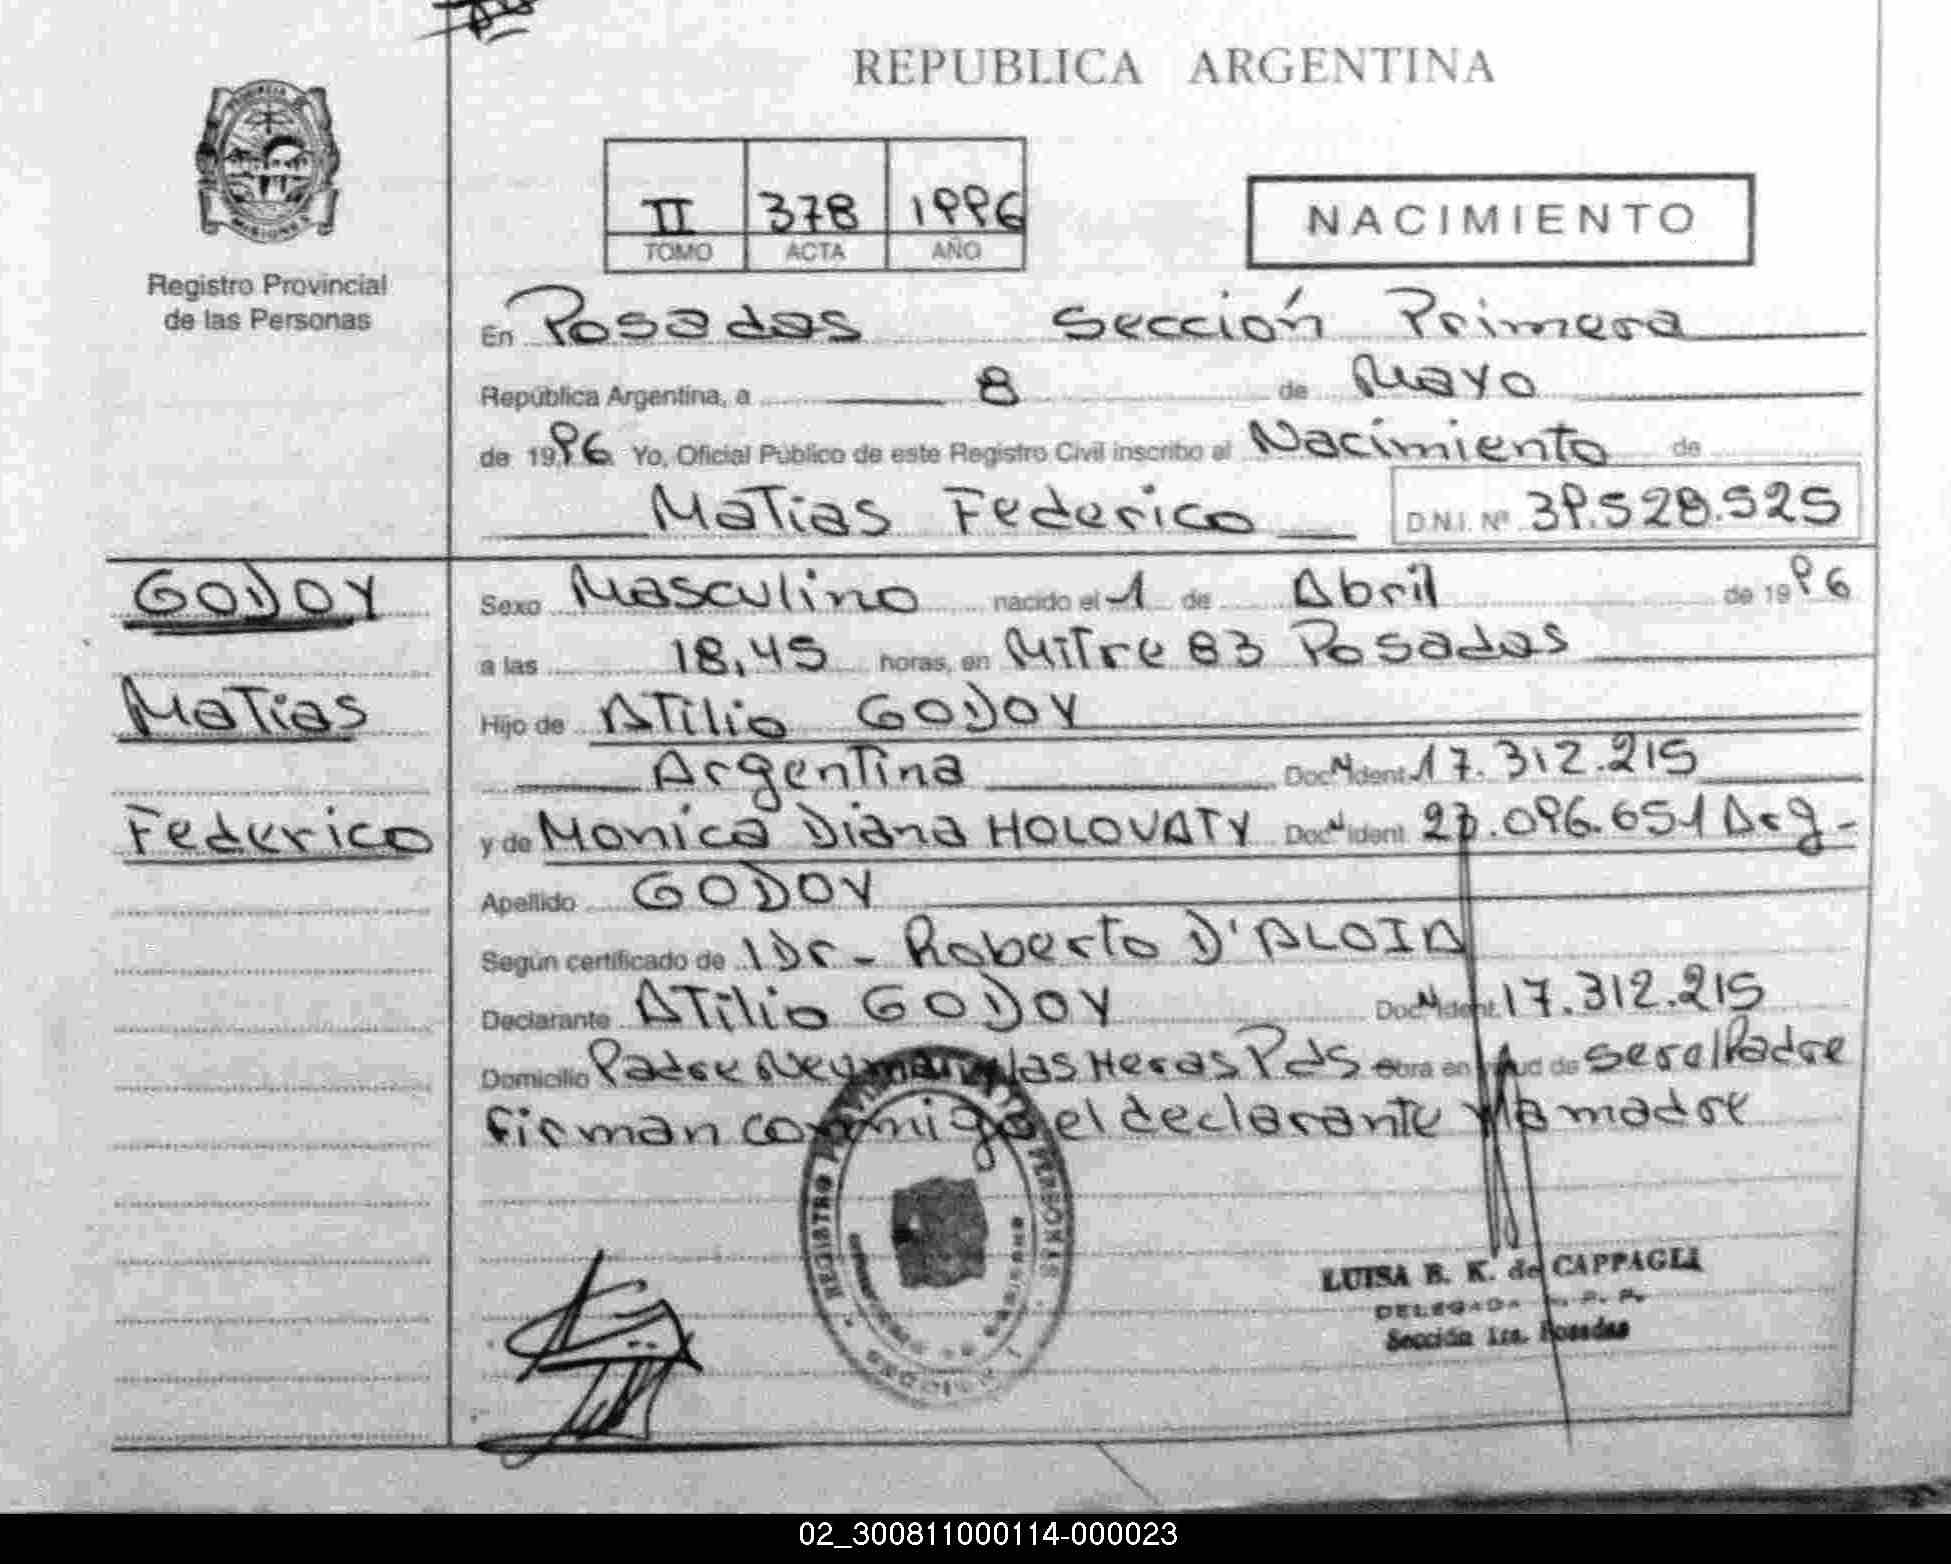 REPUBLICA ARGENTINA
II 378 1996
TOMO ACTA AÑO
NACIMIENTO
Registro Provincial
de las Personas
En Posadas Sección Primera
República Argentina, a 8 de Mayo
de 1996 Yo, Oficial Público de este Registro Civil inscribo el Nacimiento de
Matias Federico D.N.I. Nº 39.528.525
GODOY
Matias
Federico
Sexo Masculino nacido el 1 de Abril de 1996
a las 18,45 horas, en Mitre 83 Posadas
Hijo de Atilio GODOY
Argentina Doc. Ident. 17.312.215
y de Monica Diana HOLOVATY Doc. Ident. .096.651 Arg-
Apellido GODOY
Según certificado de Dr- Roberto D'ALOIA
Declarante Atilio GODOY Doc. Ident. 17.312.215
Domicilio Padre Neuman y las Heras Pds Obra en de ser el Padre
firman conmigo el declarante y la madre
REGISTRO PERSONAS
LUISA B. K. de CAPPAGLI
DELEGADA R. P. P.
Sección 1ra. Posadas
02_300811000114-000023